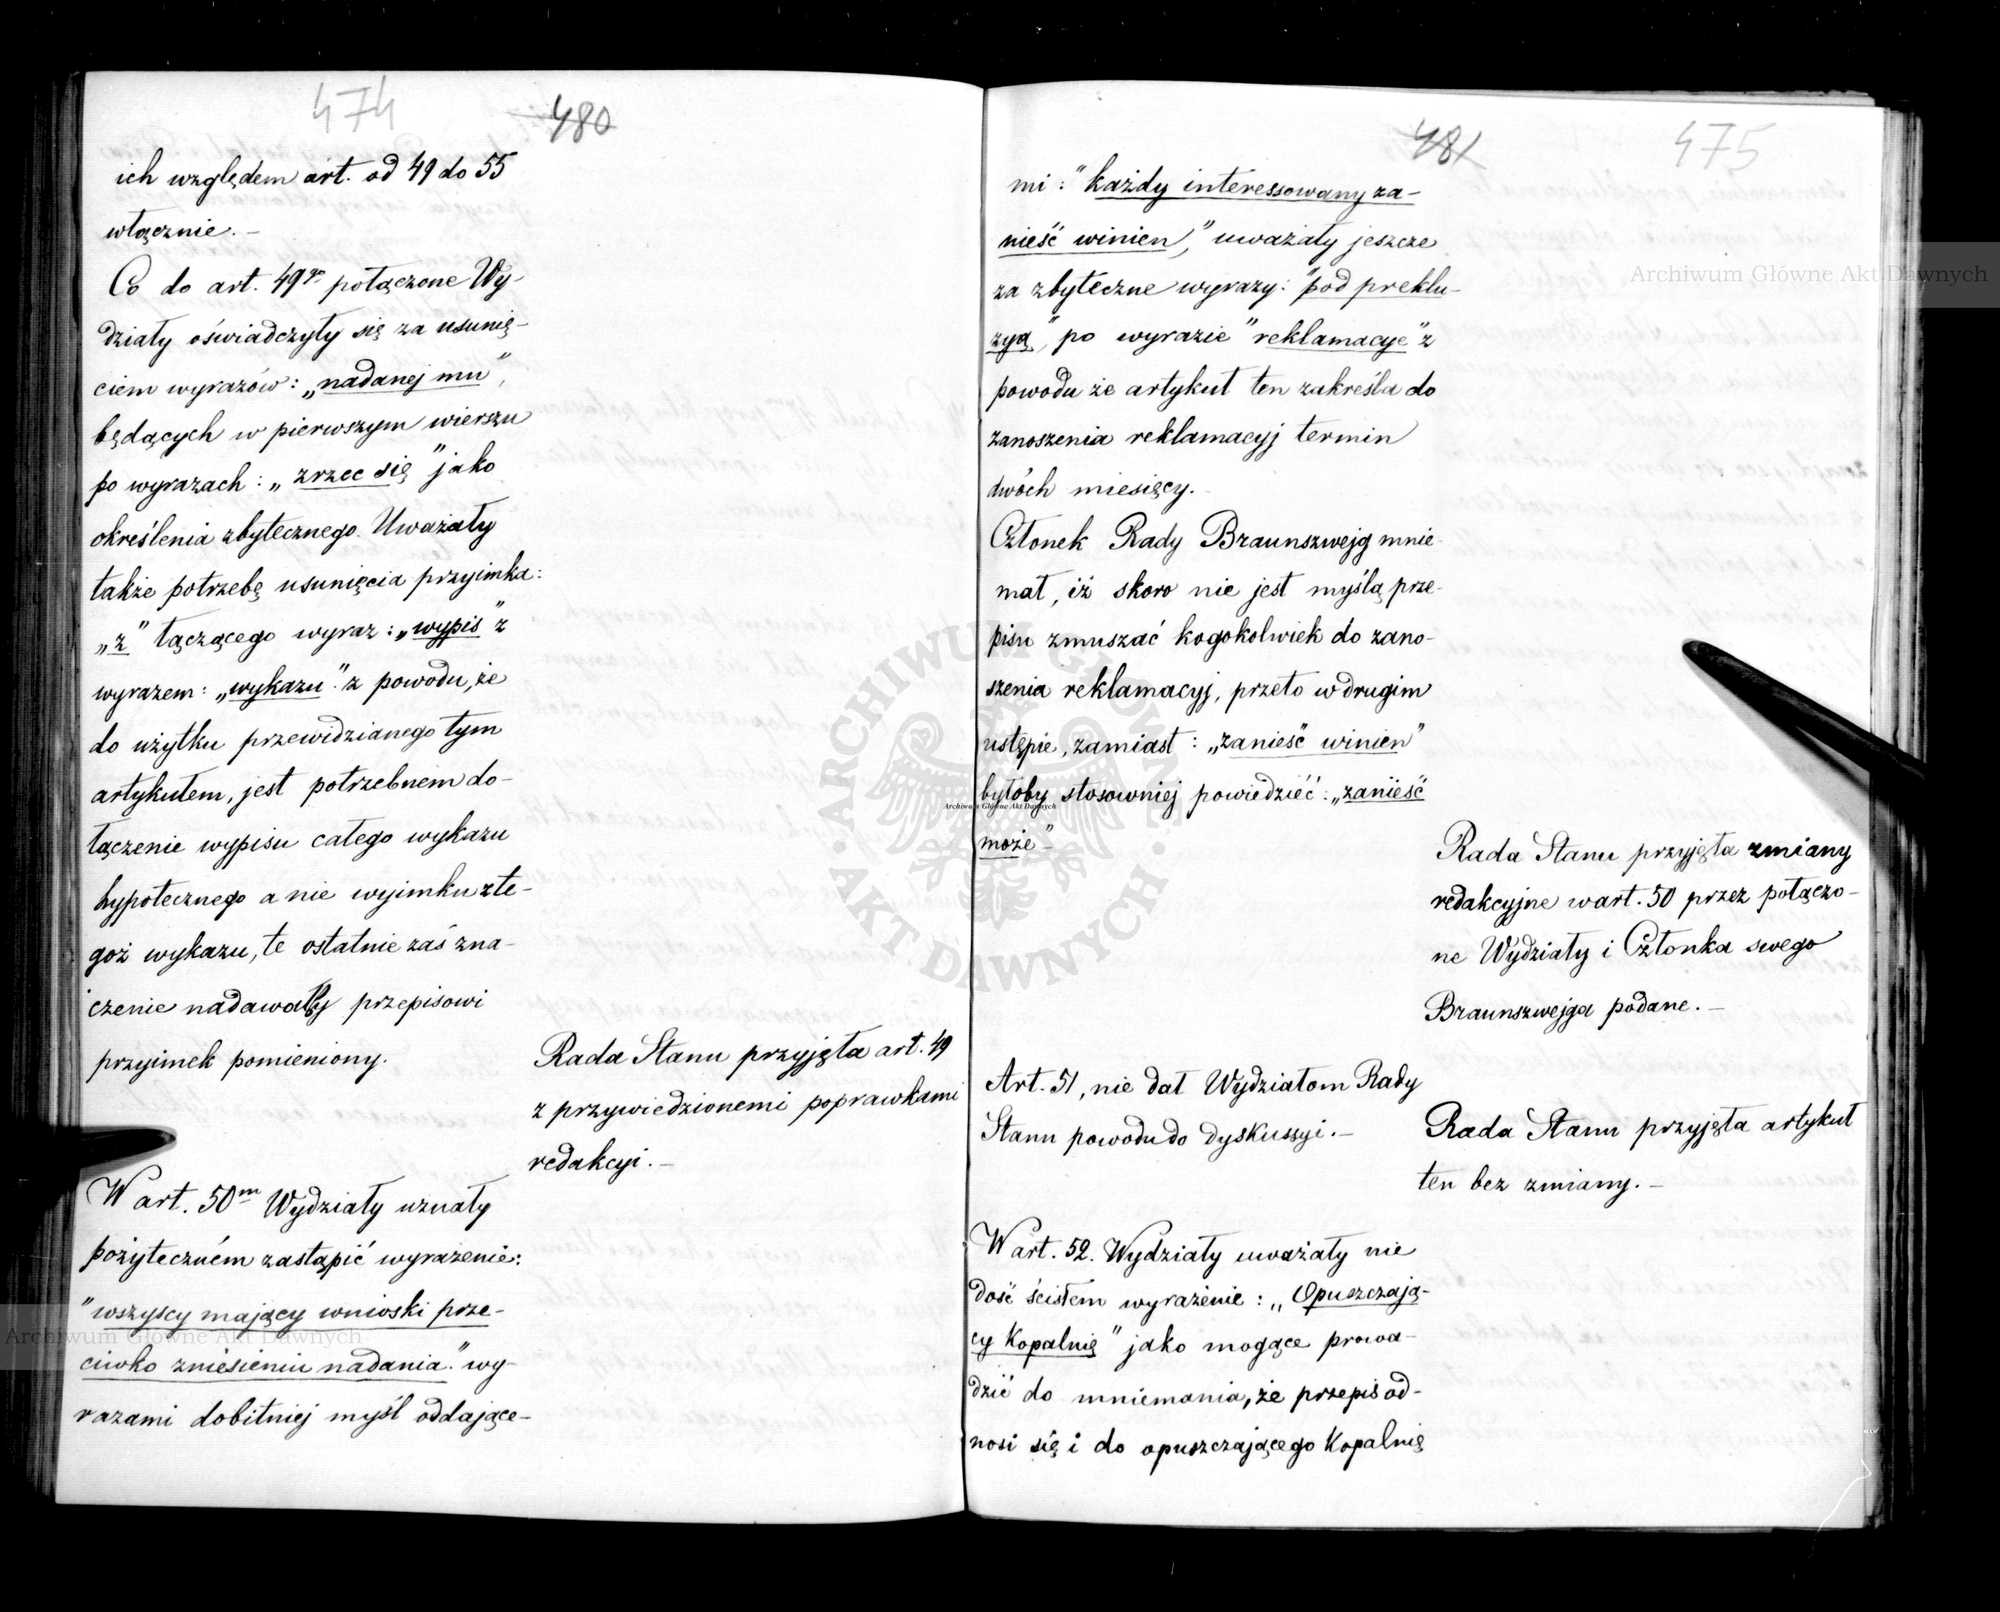 474
480
ich względem art. od 49 do 55
włącznie. –
Co do art. 49go połączone Wy-
działy oświadczyły się za usunię-
ciem wyrazów: „nadanej mu",
będących w pierwszym wierszu
po wyrazach: „zrzec się" jako
określenia zbytecznego. Uważały
także potrzebę usunięcia przyimka:
„z" łączącego wyraz: „wypis" z
wyrazem: „wykazu". z powodu, że
do użytku przewidzianego tym
artykułem, jest potrzebnem do-
łączenie wypisu całego wykazu
hypotecznego a nie wyimku z te-
goż wykazu, te ostatnie zaś zna-
czenie nadawałby przepisowi
przyimek pomieniony.
Rada Stanu przyjęła art. 49
z przywiedzionemi poprawkami
redakcyi. –
W art. 50m Wydziały uznały
pożyteczném zastąpić wyrażenie:
"wszyscy mający wnioski prze-
ciwko zniesieniu nadania." wy-
razami dobitniej myśl oddające-
481
475
mi: "każdy interessowany za-
nieść winien," uważały jeszcze
za zbyteczne wyrazy: "pod preklu-
zyą", po wyrazie "reklamacye" z
powodu że artykuł ten zakreśla do
zanoszenia reklamacyj termin
dwóch miesięcy. –
Członek Rady Braunszwejg mnie-
mał, iż skoro nie jest myślą prze-
pisu zmuszać kogokolwiek do zano-
szenia reklamacyj, przeto w drugim
ustępie, zamiast: „zanieść winien"
byłoby stosowniej powiedzieć: „zanieść
może" –
Rada Stanu przyjęła zmiany
redakcyjne w art. 50 przez połączo-
ne Wydziały i Członka swego
Braunszwejga podane. –
Art. 51, nie dał Wydziałom Rady
Stanu powodu do dyskussyi. –
Rada Stanu przyjęła artykuł
ten bez zmiany. –
W art. 52. Wydziały uważały nie
dość ścisłem wyrażenie: „Opuszczają-
cy Kopalnię" jako mogące prowa-
dzić do mniemania, że przepis od-
nosi się i do opuszczającego Kopalnię
Archiwum Główne Akt Dawnych
Archiwum Główne Akt Dawnych
Archiwum Główne Akt Dawnych
ARCHIWUM GŁÓWNE AKT DAWNYCH